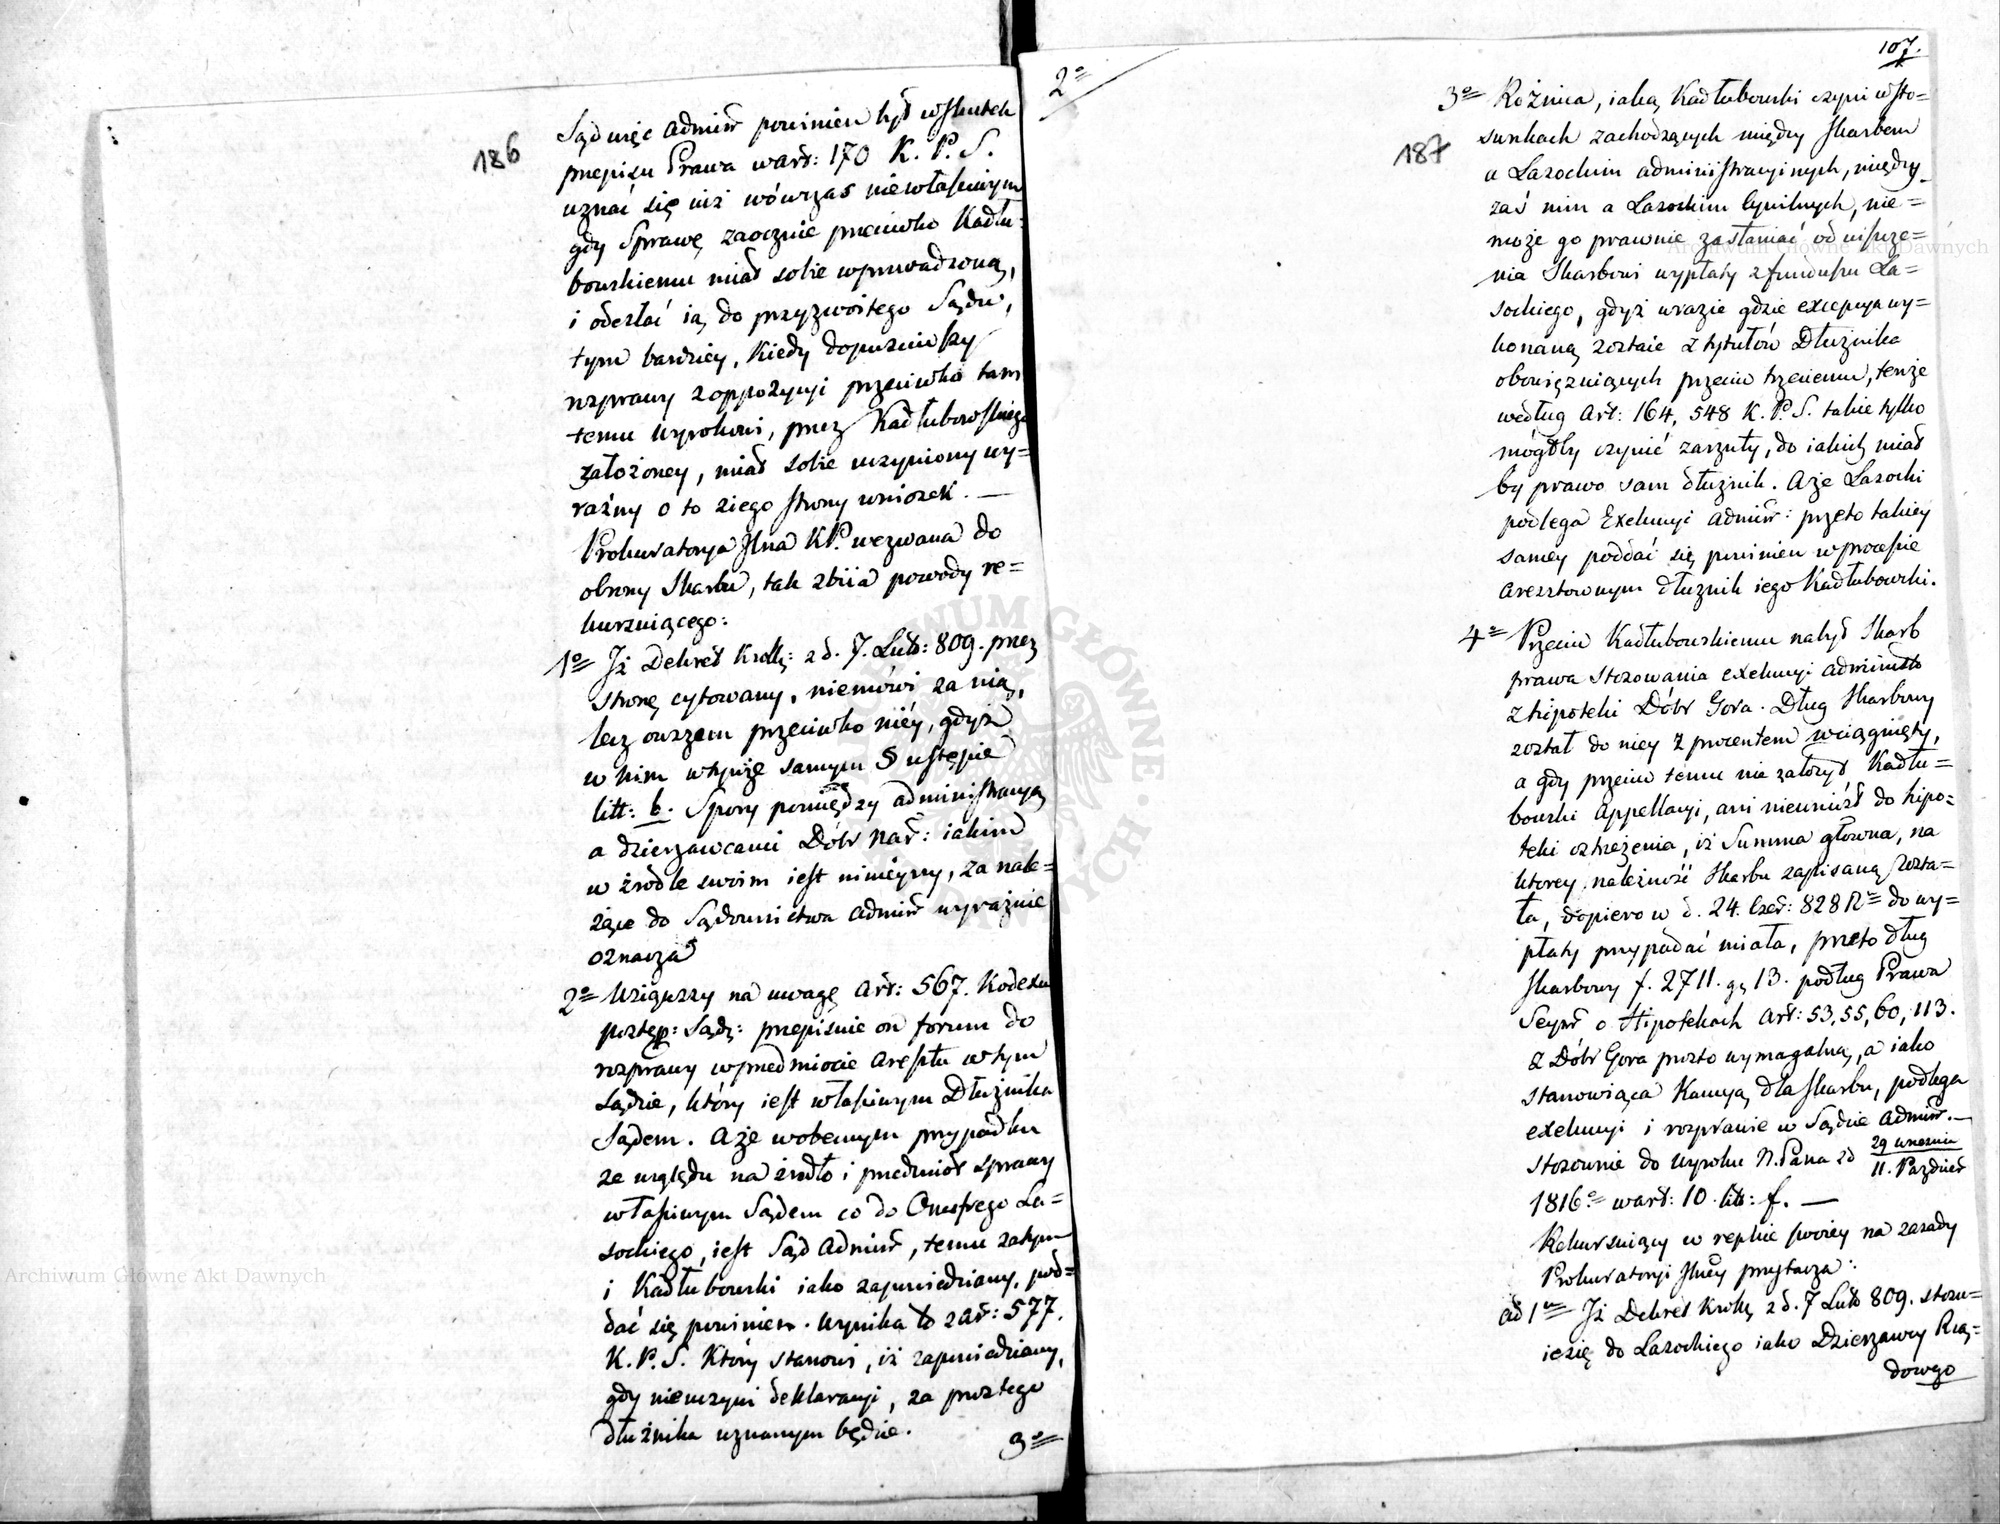 186
Sąd więc Admin̄ powinien był wskutek
przepisu Prawa w art: 170 K. P. S.
uznać się już wówczas niewłaściwym
gdy Sprawę zaocznie przeciwko Kadłu-
bowskiemu miał sobie wprowadzoną,
i odesłać ią do przyzwoitego Sądu,
tym bardziey, kiedy dopuściwszy
rozprawy z oppozycyi przeciwko tam
temu wyrokowi, przez Kadłubowskiego
założoney, miał sobie uczyniony wy=
raźny o to z iego strony wniosek. —
Prokuratorya Jlna KP. wezwana do
obrony Skarbu, tak zbiia powody re=
kursuiącego:
1o= Iż Dekret Krolḷ: z d. 7. Lut: 809. przez
stronę cytowany, niemówi za nią,
lecz owszem przeciwko niéy, gdyż
w nim w tymże samym 5 ustępie
litt: b. Spory pomiędzy administracyą
a dzierzawcami Dóbr Nar: iakim
w źrodle swoim iest niniéyszy, za nale=
żące do Sądownictwa Admin̄ wyraźnie
oznacza
2o= Wziąwszy na uwagę Art: 567. Kodexu
postęp: Sąd: przepisuie on forum do
rozprawy w przedmiocie Aresztu w tym
Sądzie, który iest właściwym Dłużnika
Sądem. A że w obecnym przypadku
ze względu na źrodło i przedmiot sprawy
właściwym Sądem co do Onufrego La=
sockiego, iest Sąd Admin̄, temu zatym
i Kadłubowski iako zapowiedziany, pod=
dać się powinien. Wynika to z Art: 577.
K. P. S. Który stanowi, iż zapowiedziany,
gdy nieuczyni deklaracyi, za prostego
dłużnika uznanym będzie.
3o=
2o=
107.
187
3o= Rożnica, iaką Kadłubowski czyni w sto=
sunkach zachodzących między Skarbem
a Lasockim administracyinych, między
zaś nim a Lasockim Cywilnych, nie=
może go prawnie zasłaniać od uiszcze=
nia Skarbowi wypłaty z funduszu La=
sockiego, gdyż w razie gdzie exepcya wy=
konaną zostaie z tytułów Dłużnika
obowięzuiących przeciw trzeciemu, tenże
według Art: 164, 548 K. P. S. takie tylko
mógłby czynić zarzuty, do iakich miał
by prawo sam dłużnik. A że Lasocki
podlega Exekucyi Admin̄: przeto takiey
samey poddać się powinien w procesie
Aresztowym dłużnik iego Kadłubowski.
4o= Przeciw Kadłubowskiemu nabył Skarb
prawa stosowania exekucyi administr
z hipoteki Dóbr Gora. Dług Skarbowy
został do niey z procentem wciągnięty,
a gdy przeciw temu nie założył Kadłu=
bowski Appellacyi, ani nieuniósł do hipo=
teki ostrzeżenia, iż Summa główna, na
ktorey należność Skarbu zapisaną zosta=
ła, dopiero w d. 24. Czer: 828 R= do wy=
płaty przypadać miała, przeto dług
Skarbowy f. 2711. g. 13. podług Prawa
Seym̄ o Hipotekach Art: 53, 55, 60, 113.
z Dóbr Gora prosto wymagalną, a iako
stanowiąca Kaucyą dla Skarbu, podlega
exekucyi i rozprawie w Sądzie Admin̄. —
stosownie do Wyroku N. Pana z d 29 wrzesnia
11. Paździer
1816o= w art: 10. lit: f. —
Rekursuiący w replice swoiey na zasady
Prokuratoryi Jlnéy przytacza:
Ad 1m= Iż Dekret Krolḷ z d. 7 Lut 809. stosu=
ie się do Lasockiego iako Dzierzawcy Rzą=
dowego